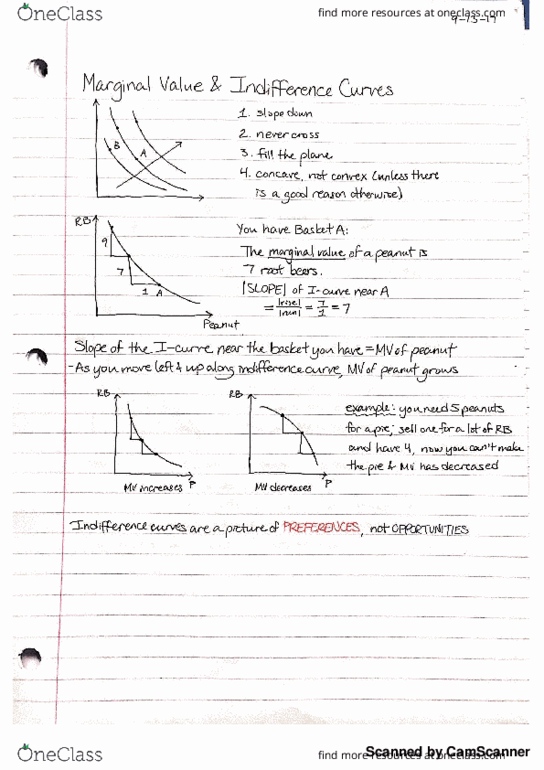 OneClass
find more resources at oneclass.com
9-13-17
Marginal Value & Indifference Curves
1. slope down
2. never cross
3. fill the plane
4. concave, not convex (unless there
is a good reason otherwise)
B
A
RB
9
7
1 A
Peanut
You have Basket A:
The marginal value of a peanut is
7 root beers.
|SLOPE| of I-curve near A
= |rise|/|run| = 7/1 = 7
Slope of the I-curve near the basket you have = MV of peanut
- As you move left & up along indifference curve, MV of peanut grows
RB
P
MV increases
RB
P
MV decreases
example: you need 5 peanuts
for a pie; sell one for a lot of RB
and have 4, now you can't make
the pie & MV has decreased
Indifference curves are a picture of PREFERENCES, not OPPORTUNITIES
OneClass
find more resources at oneclass.com
Scanned by CamScanner